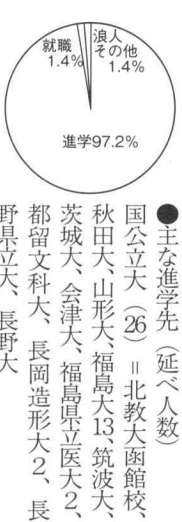 就職
1.4%
浪人
その他
1.4%
進学97.2%
●主な進学先（延べ人数）
国公立大（26）＝北教大函館校、
秋田大、山形大、福島大13、筑波大、
茨城大、会津大、福島県立医大2、
都留文科大、長岡造形大2、長
野県立大、長野大